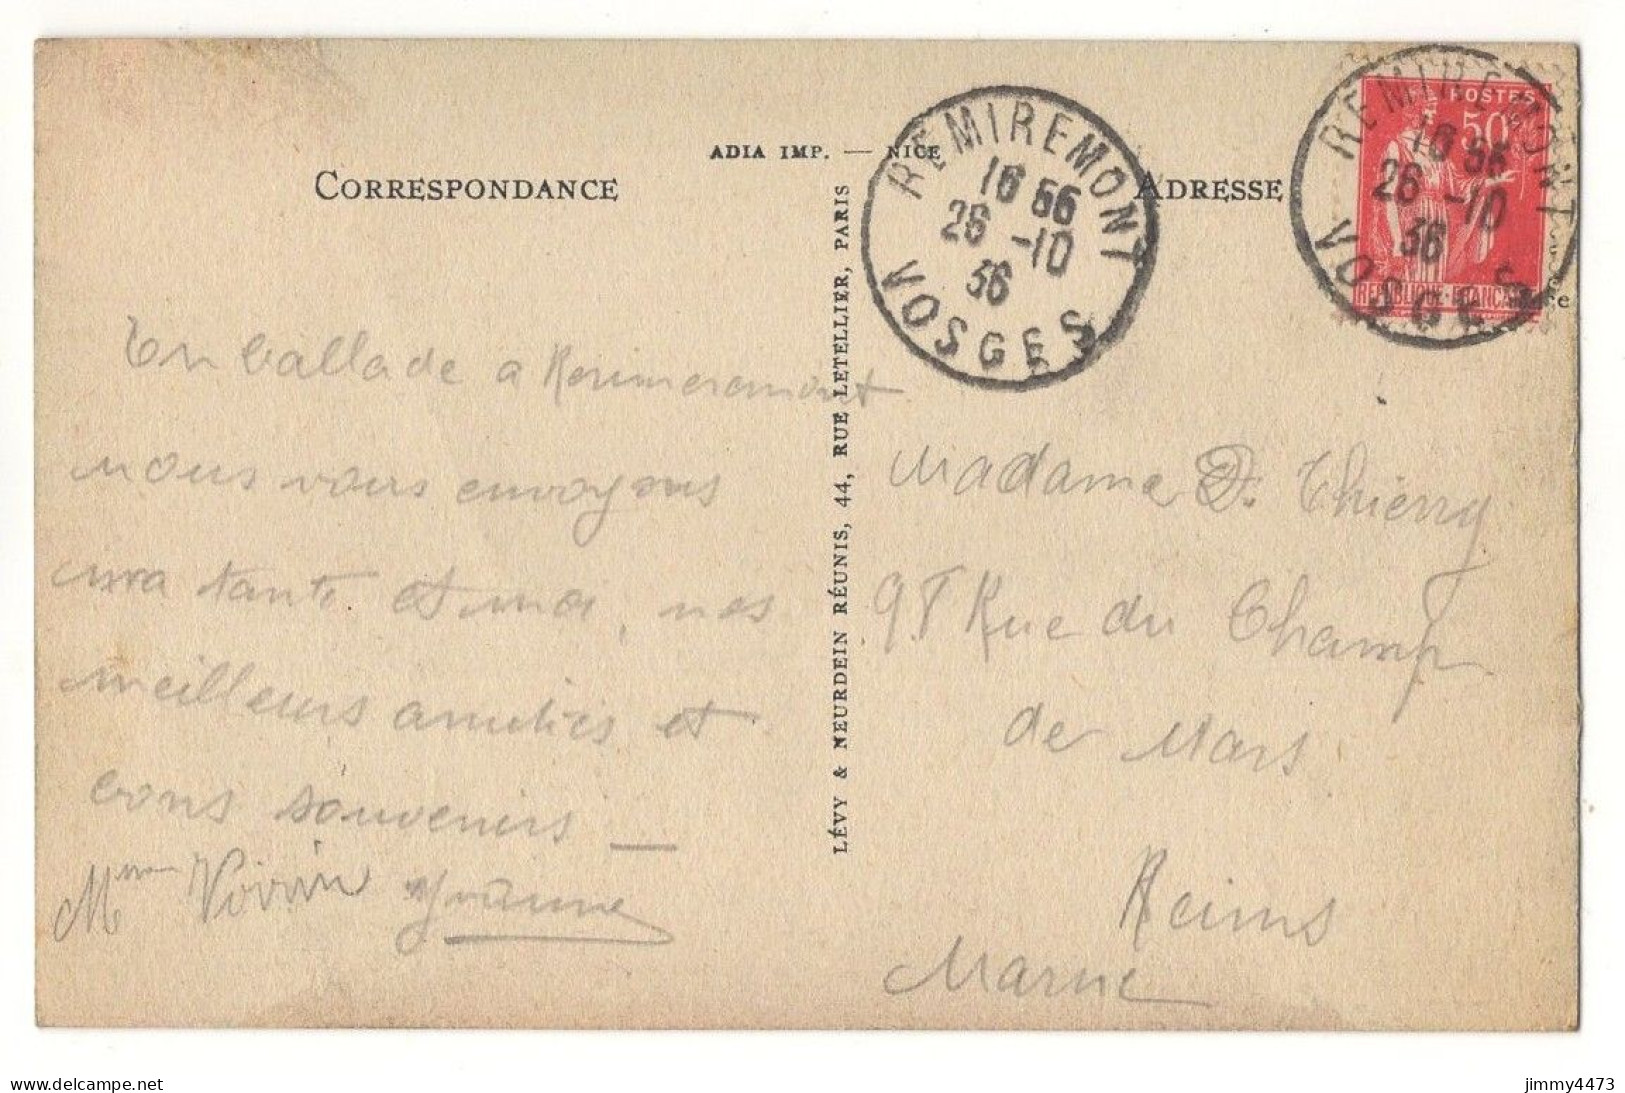 ADIA IMP. — NICE
CORRESPONDANCE
ADRESSE
LÉVY & NEURDEIN RÉUNIS, 44, RUE LETELLIER, PARIS
REMIREMONT
16 56
26 -10
36
VOSGES
REMIREMONT
16 56
26 -10
36
VOSGES
POSTES
50
REPUBLIQUE FRANCAISE
En ballade a Remimeremont
nous vous envoyons
ma tante et moi, nos
meilleurs amitiés et
bons souvenirs —
Mme Voirin Yvonne
Madame D. Thierry
98 Rue du Champ
de Mars
Reims
Marne
www.delcampe.net
jimmy4473